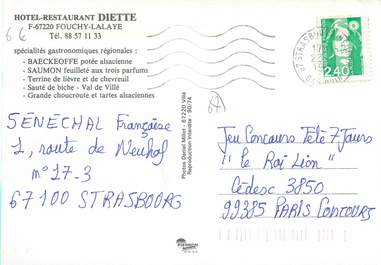 HOTEL-RESTAURANT DIETTE
F-67220 FOUCHY-LALAYE
Tél. 88 57 11 33
6€
spécialités gastronomiques régionales :
- BAECKEOFFE potée alsacienne
- SAUMON feuilleté aux trois parfums
- Terrine de lièvre et de chevreuil
- Sauté de biche - Val de Villé
- Grande choucroute et tartes alsaciennes
Photos Daniel Millet - 67220 Villé
Reproduction interdite - 90/74
67 STRASBOURG
2,40
67
SÉNÉCHAL Françoise
1, route de Neuhof
n° 17-3
67100 STRASBOURG
Jeu Concours Télé 7 Jours
"Le Roi Lion"
Cédesc 3850
99385 PARIS CONCOURS
PIERRON